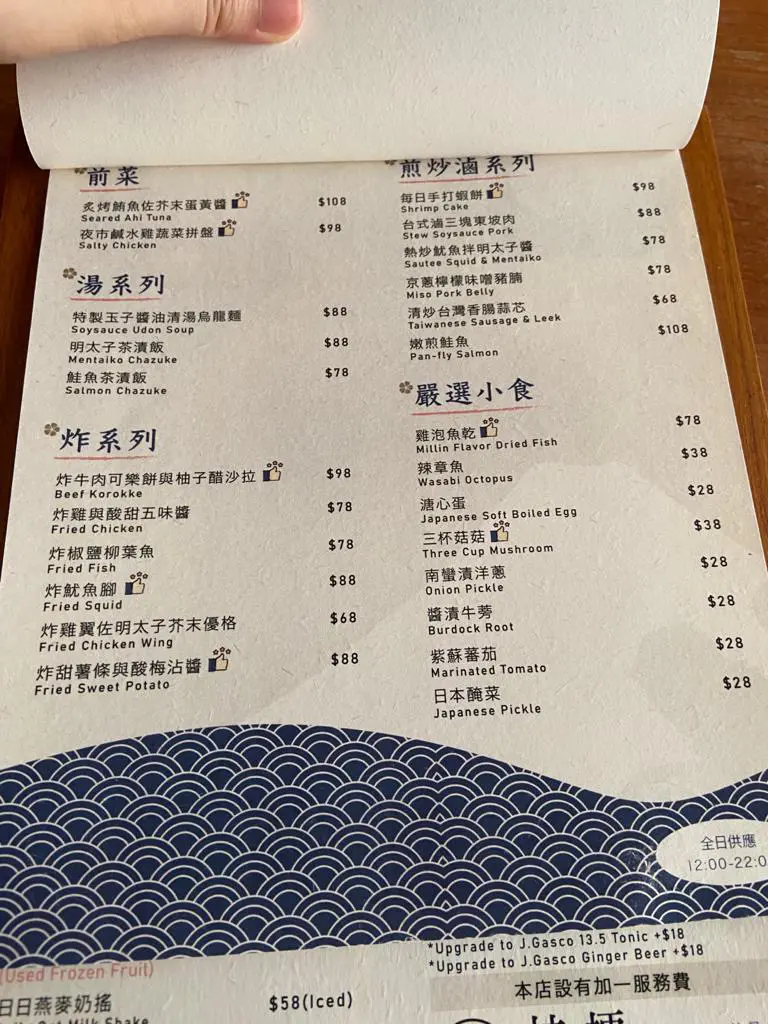 前菜
炙烤鮪魚佐芥末蛋黃醬 $108
Seared Ahi Tuna
夜市鹹水雞蔬菜拼盤 $98
Salty Chicken
湯系列
特製玉子醬油清湯烏龍麵 $88
Soysauce Udon Soup
明太子茶漬飯 $88
Mentaiko Chazuke
鮭魚茶漬飯 $78
Salmon Chazuke
炸系列
炸牛肉可樂餅與柚子醋沙拉 $98
Beef Korokke
炸雞與酸甜五味醬 $78
Fried Chicken
炸椒鹽柳葉魚 $78
Fried Fish
炸魷魚腳 $88
Fried Squid
炸雞翼佐明太子芥末優格 $68
Fried Chicken Wing
炸甜薯條與酸梅沾醬 $88
Fried Sweet Potato
煎炒滷系列
每日手打蝦餅 $98
Shrimp Cake
台式滷三塊東坡肉 $88
Stew Soysauce Pork
熱炒魷魚拌明太子醬 $78
Sautee Squid & Mentaiko
京蔥檸檬味噌豬腩 $78
Miso Pork Belly
清炒台灣香腸蒜芯 $68
Taiwanese Sausage & Leek
嫩煎鮭魚 $108
Pan-fly Salmon
嚴選小食
雞泡魚乾 $78
Millin Flavor Dried Fish
辣章魚 $38
Wasabi Octopus
溏心蛋 $28
Japanese Soft Boiled Egg
三杯菇菇 $38
Three Cup Mushroom
南蠻漬洋蔥 $28
Onion Pickle
醬漬牛蒡 $28
Burdock Root
紫蘇蕃茄 $28
Marinated Tomato
日本醃菜 $28
Japanese Pickle
全日供應
12:00-22:0
*Upgrade to J.Gasco 13.5 Tonic +$18
*Upgrade to J.Gasco Ginger Beer +$18
本店設有加一服務費
(Used Frozen Fruit)
日日燕麥奶搖 $58(Iced)
Oat Milk Shake